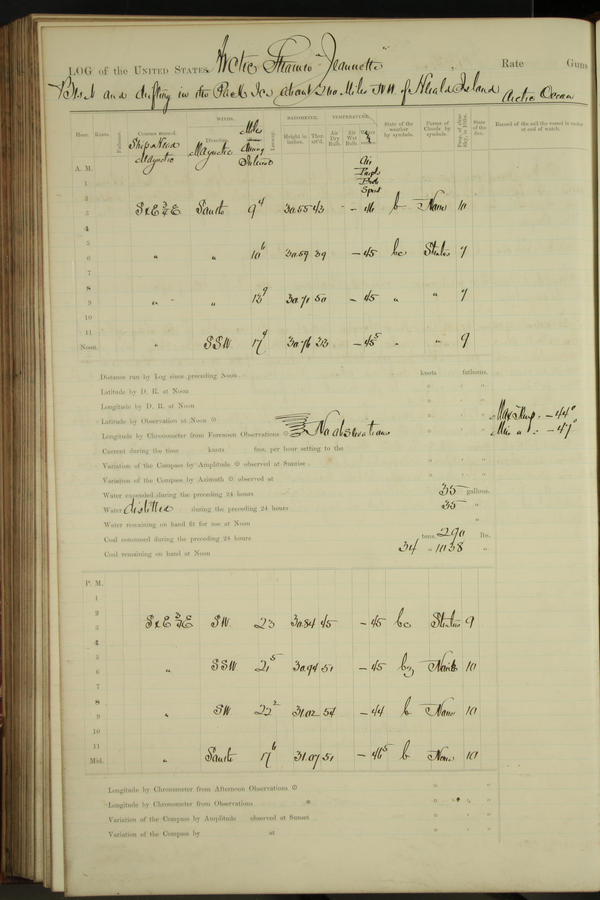 LOG of the UNITED STATES Arctic Steamer "Jeannette" Rate Guns
Beset and drifting in the Pack Ice about 240 Miles NW. of Herald Island Arctic Ocean
Hour. Knots. Fathoms. Courses steered. Ship's Head Magnetic WINDS. Direction. Magnetic Leeway. BAROMETER. Height in inches. Ther. att'd. TEMPERATURE. Air Dry Bulb. Air Wet Bulb. State of the weather by symbols. Forms of Clouds by symbols. State of the Sea. Record of the sail the vessel is under at end of watch.
Air
Spirit
A. M.
1
2
3 S x E 3/4 E South 9 4 30.55 43 - 46 b None 10
4
5
6 " " 10 6 30.59 39 - 45 bc Stratus 7
7
8
9 " " 13 9 30.71 50 - 45 " " 7
10
11
Noon. " SSW. 17 4 30.76 33 - 45 5 " " 9
Distance run by Log since preceding Noon knots fathoms.
Latitude by D. R. at Noon
Longitude by D. R. at Noon Max Temp. - 44°
Latitude by Observation at Noon Min " - 47°
Longitude by Chronometer from Forenoon Observations No observations
Current during the time knots fms. per hour setting to the
Variation of the Compass by Amplitude observed at Sunrise
Variation of the Compass by Azimuth observed at
Water expended during the preceding 24 hours 35 gallons.
Water distilled during the preceding 24 hours 35 "
Water remaining on hand fit for use at Noon "
Coal consumed during the preceding 24 hours tons, 290 lbs.
Coal remaining on hand at Noon 34 " 1038 "
P. M.
1
2
3 S x E 3/4 E SW. 23 30.84 45 - 45 bc Stratus 9
4
5
6 " SSW. 21 5 30.94 51 - 45 10
7
8
9 " SW. 22 2 31.02 54 - 44 b None 10
10
11
Mid. " South 17 6 31.07 51 - 46 5 b None 10
Longitude by Chronometer from Afternoon Observations
Longitude by Chronometer from Observations
Variation of the Compass by Amplitude observed at Sunset
Variation of the Compass by at